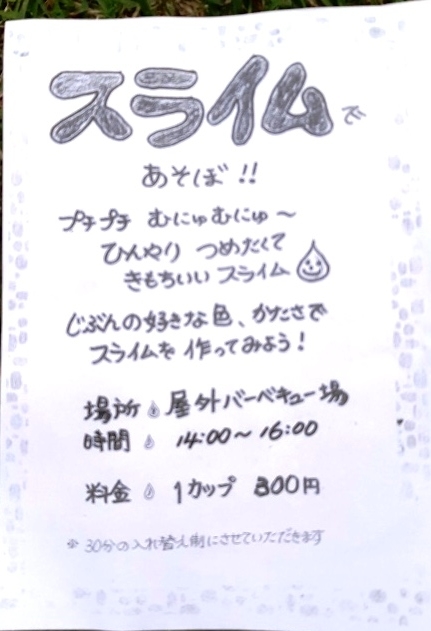 スライムで
あそぼ!!
プチプチ むにゅむにゅ～
ひんやり つめたくて
きもちいい スライム
じぶんの好きな色、かたさで
スライムを 作ってみよう!
場所 屋外バーベキュー場
時間 14:00～16:00
料金 1カップ 300円
※30分の入れ替え制にさせていただきます